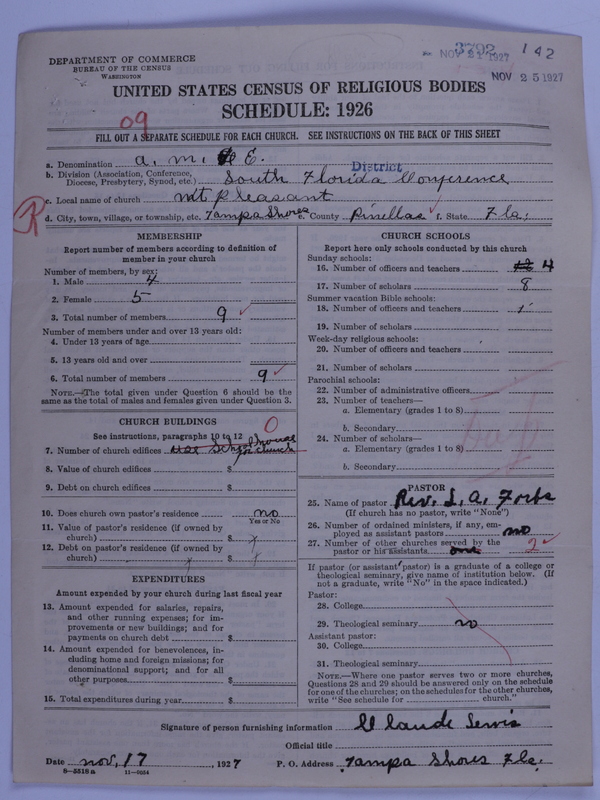 DEPARTMENT OF COMMERCE
BUREAU OF THE CENSUS
WASHINGTON
3792
NOV 21 1927
142
NOV 25 1927
UNITED STATES CENSUS OF RELIGIOUS BODIES
SCHEDULE: 1926
09
FILL OUT A SEPARATE SCHEDULE FOR EACH CHURCH. SEE INSTRUCTIONS ON THE BACK OF THIS SHEET
a. Denomination A. M. E.
District
b. Division (Association, Conference, Diocese, Presbytery, Synod, etc.) South Florida Conference
c. Local name of church Mt Pleasant
R
d. City, town, village, or township, etc. Tampa Shores e. County Pinellas f. State Fla.
MEMBERSHIP
Report number of members according to definition of
member in your church
Number of members, by sex:
1. Male 4
2. Female 5
3. Total number of members 9
Number of members under and over 13 years old:
4. Under 13 years of age
5. 13 years old and over
6. Total number of members 9
NOTE.—The total given under Question 6 should be the
same as the total of males and females given under Question 3.
CHURCH BUILDINGS
See instructions, paragraphs 10 to 12
0
7. Number of church edifices use School house for church
8. Value of church edifices $
9. Debt on church edifices $
10. Does church own pastor's residence no
Yes or No
11. Value of pastor's residence (if owned by
church) $
12. Debt on pastor's residence (if owned by
church) $
EXPENDITURES
Amount expended by your church during last fiscal year
13. Amount expended for salaries, repairs,
and other running expenses; for im-
provements or new buildings; and for
payments on church debt $
14. Amount expended for benevolences, in-
cluding home and foreign missions; for
denominational support; and for all
other purposes $
15. Total expenditures during year $
CHURCH SCHOOLS
Report here only schools conducted by this church
Sunday schools:
16. Number of officers and teachers 4
17. Number of scholars 8
Summer vacation Bible schools:
18. Number of officers and teachers
19. Number of scholars
Week-day religious schools:
20. Number of officers and teachers
21. Number of scholars
Parochial schools:
22. Number of administrative officers
23. Number of teachers—
a. Elementary (grades 1 to 8)
b. Secondary
24. Number of scholars—
a. Elementary (grades 1 to 8)
b. Secondary
PASTOR
25. Name of pastor Rev. L. A. Forbs
(If church has no pastor, write "None")
26. Number of ordained ministers, if any, em-
ployed as assistant pastors no
27. Number of other churches served by the
pastor or his assistants one 2
If pastor (or assistant pastor) is a graduate of a college or
theological seminary, give name of institution below. (If
not a graduate, write "No" in the space indicated.)
Pastor:
28. College
29. Theological seminary no
Assistant pastor:
30. College
31. Theological seminary
NOTE.—Where one pastor serves two or more churches,
Questions 28 and 29 should be answered only on the schedule
for one of the churches; on the schedules for the other churches,
write "See schedule for church."
Signature of person furnishing information Claude Lewis
Official title
Date Nov. 17 1927 P. O. Address Tampa Shores Fla.
8—5518a 11—9654